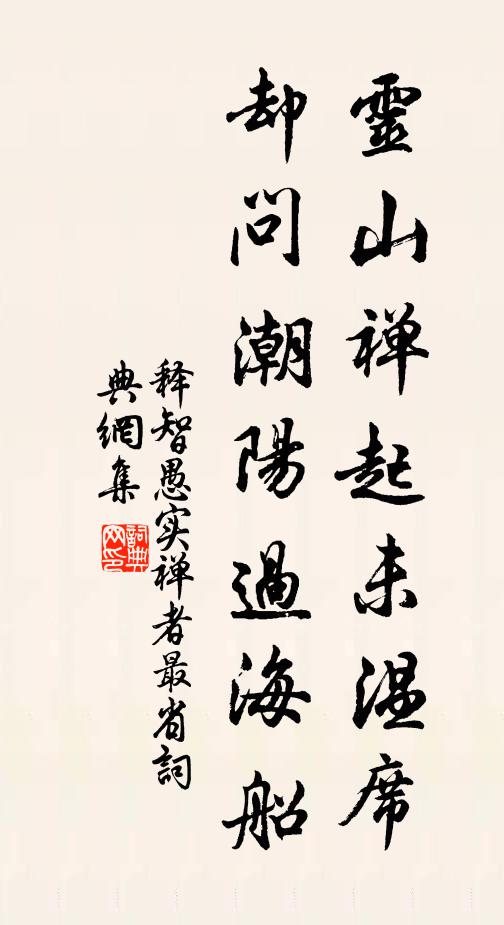 靈山禅起未温席
却問潮陽過海船
释智愚实禅者最省詞
典網集
詞典
网印